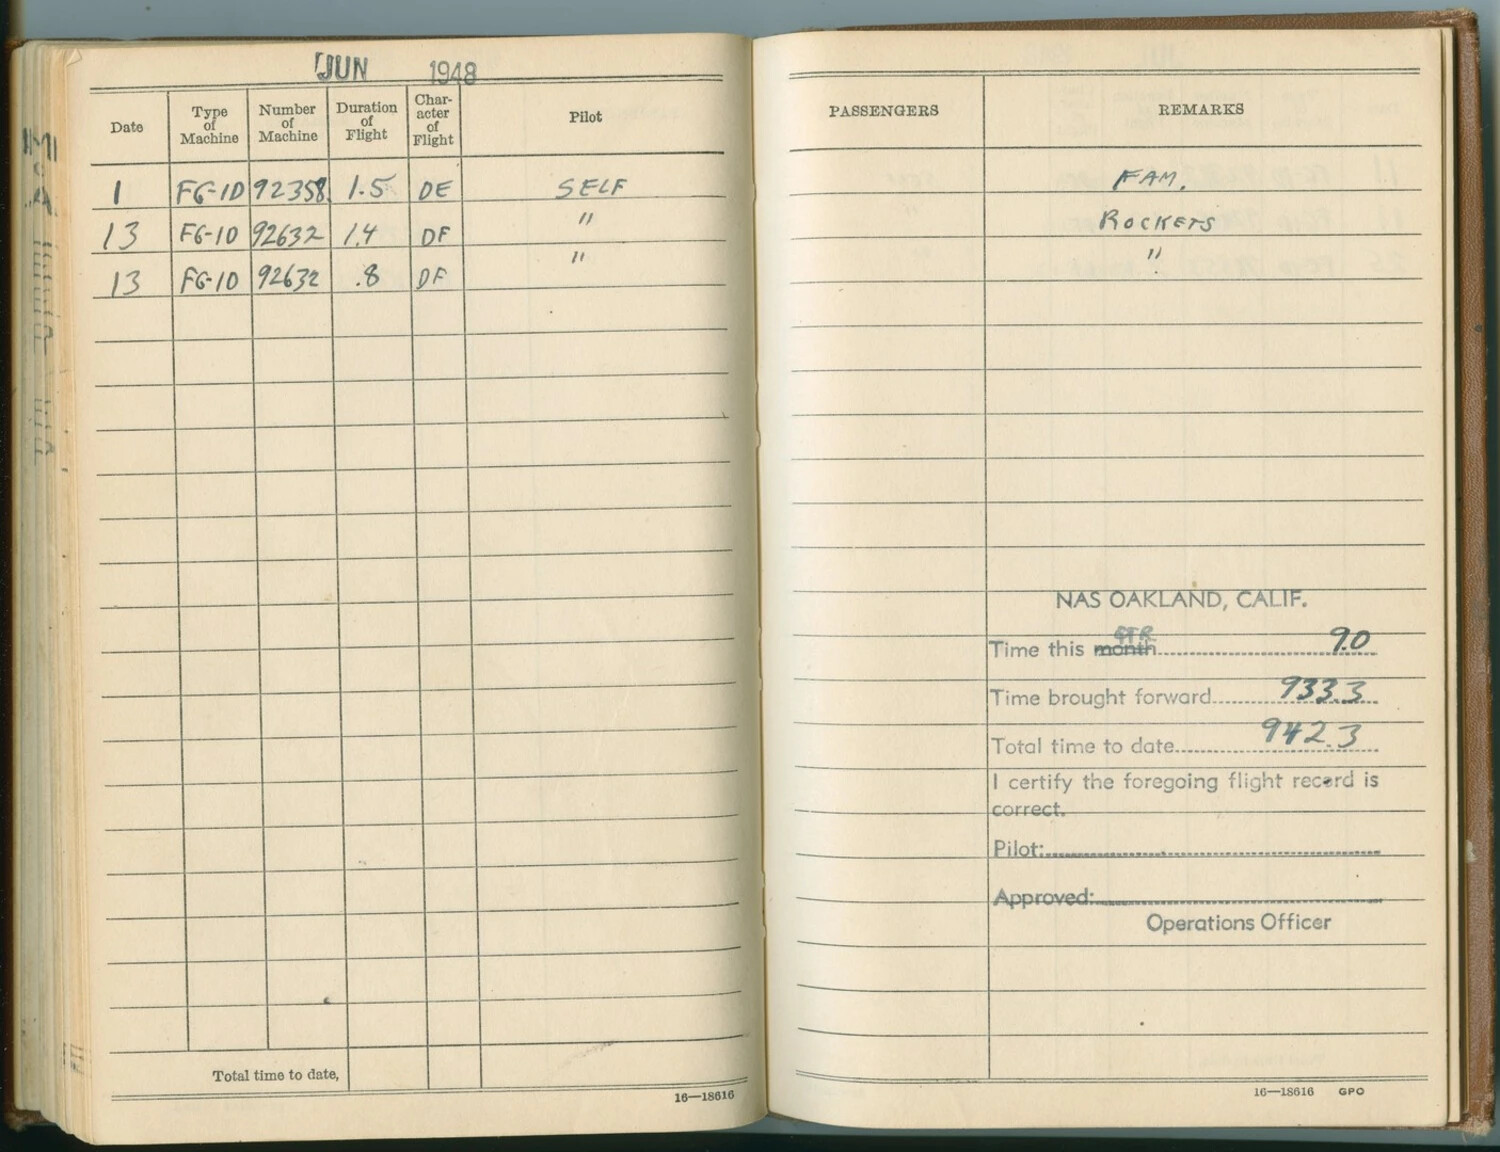 JUN 1948
Date Type of Machine Number of Machine Duration of Flight Char-acter of Flight Pilot
1 FG-1D 92358 1.5 DE SELF
13 FG-1D 92632 1.4 DF "
13 FG-1D 92632 .8 DF "
Total time to date,
16—18616
PASSENGERS REMARKS
FAM.
ROCKETS
"
NAS OAKLAND, CALIF.
QTR
Time this month 9.0
Time brought forward 933.3
Total time to date 942.3
I certify the foregoing flight record is
correct.
Pilot:
Approved:
Operations Officer
16—18616 GPO